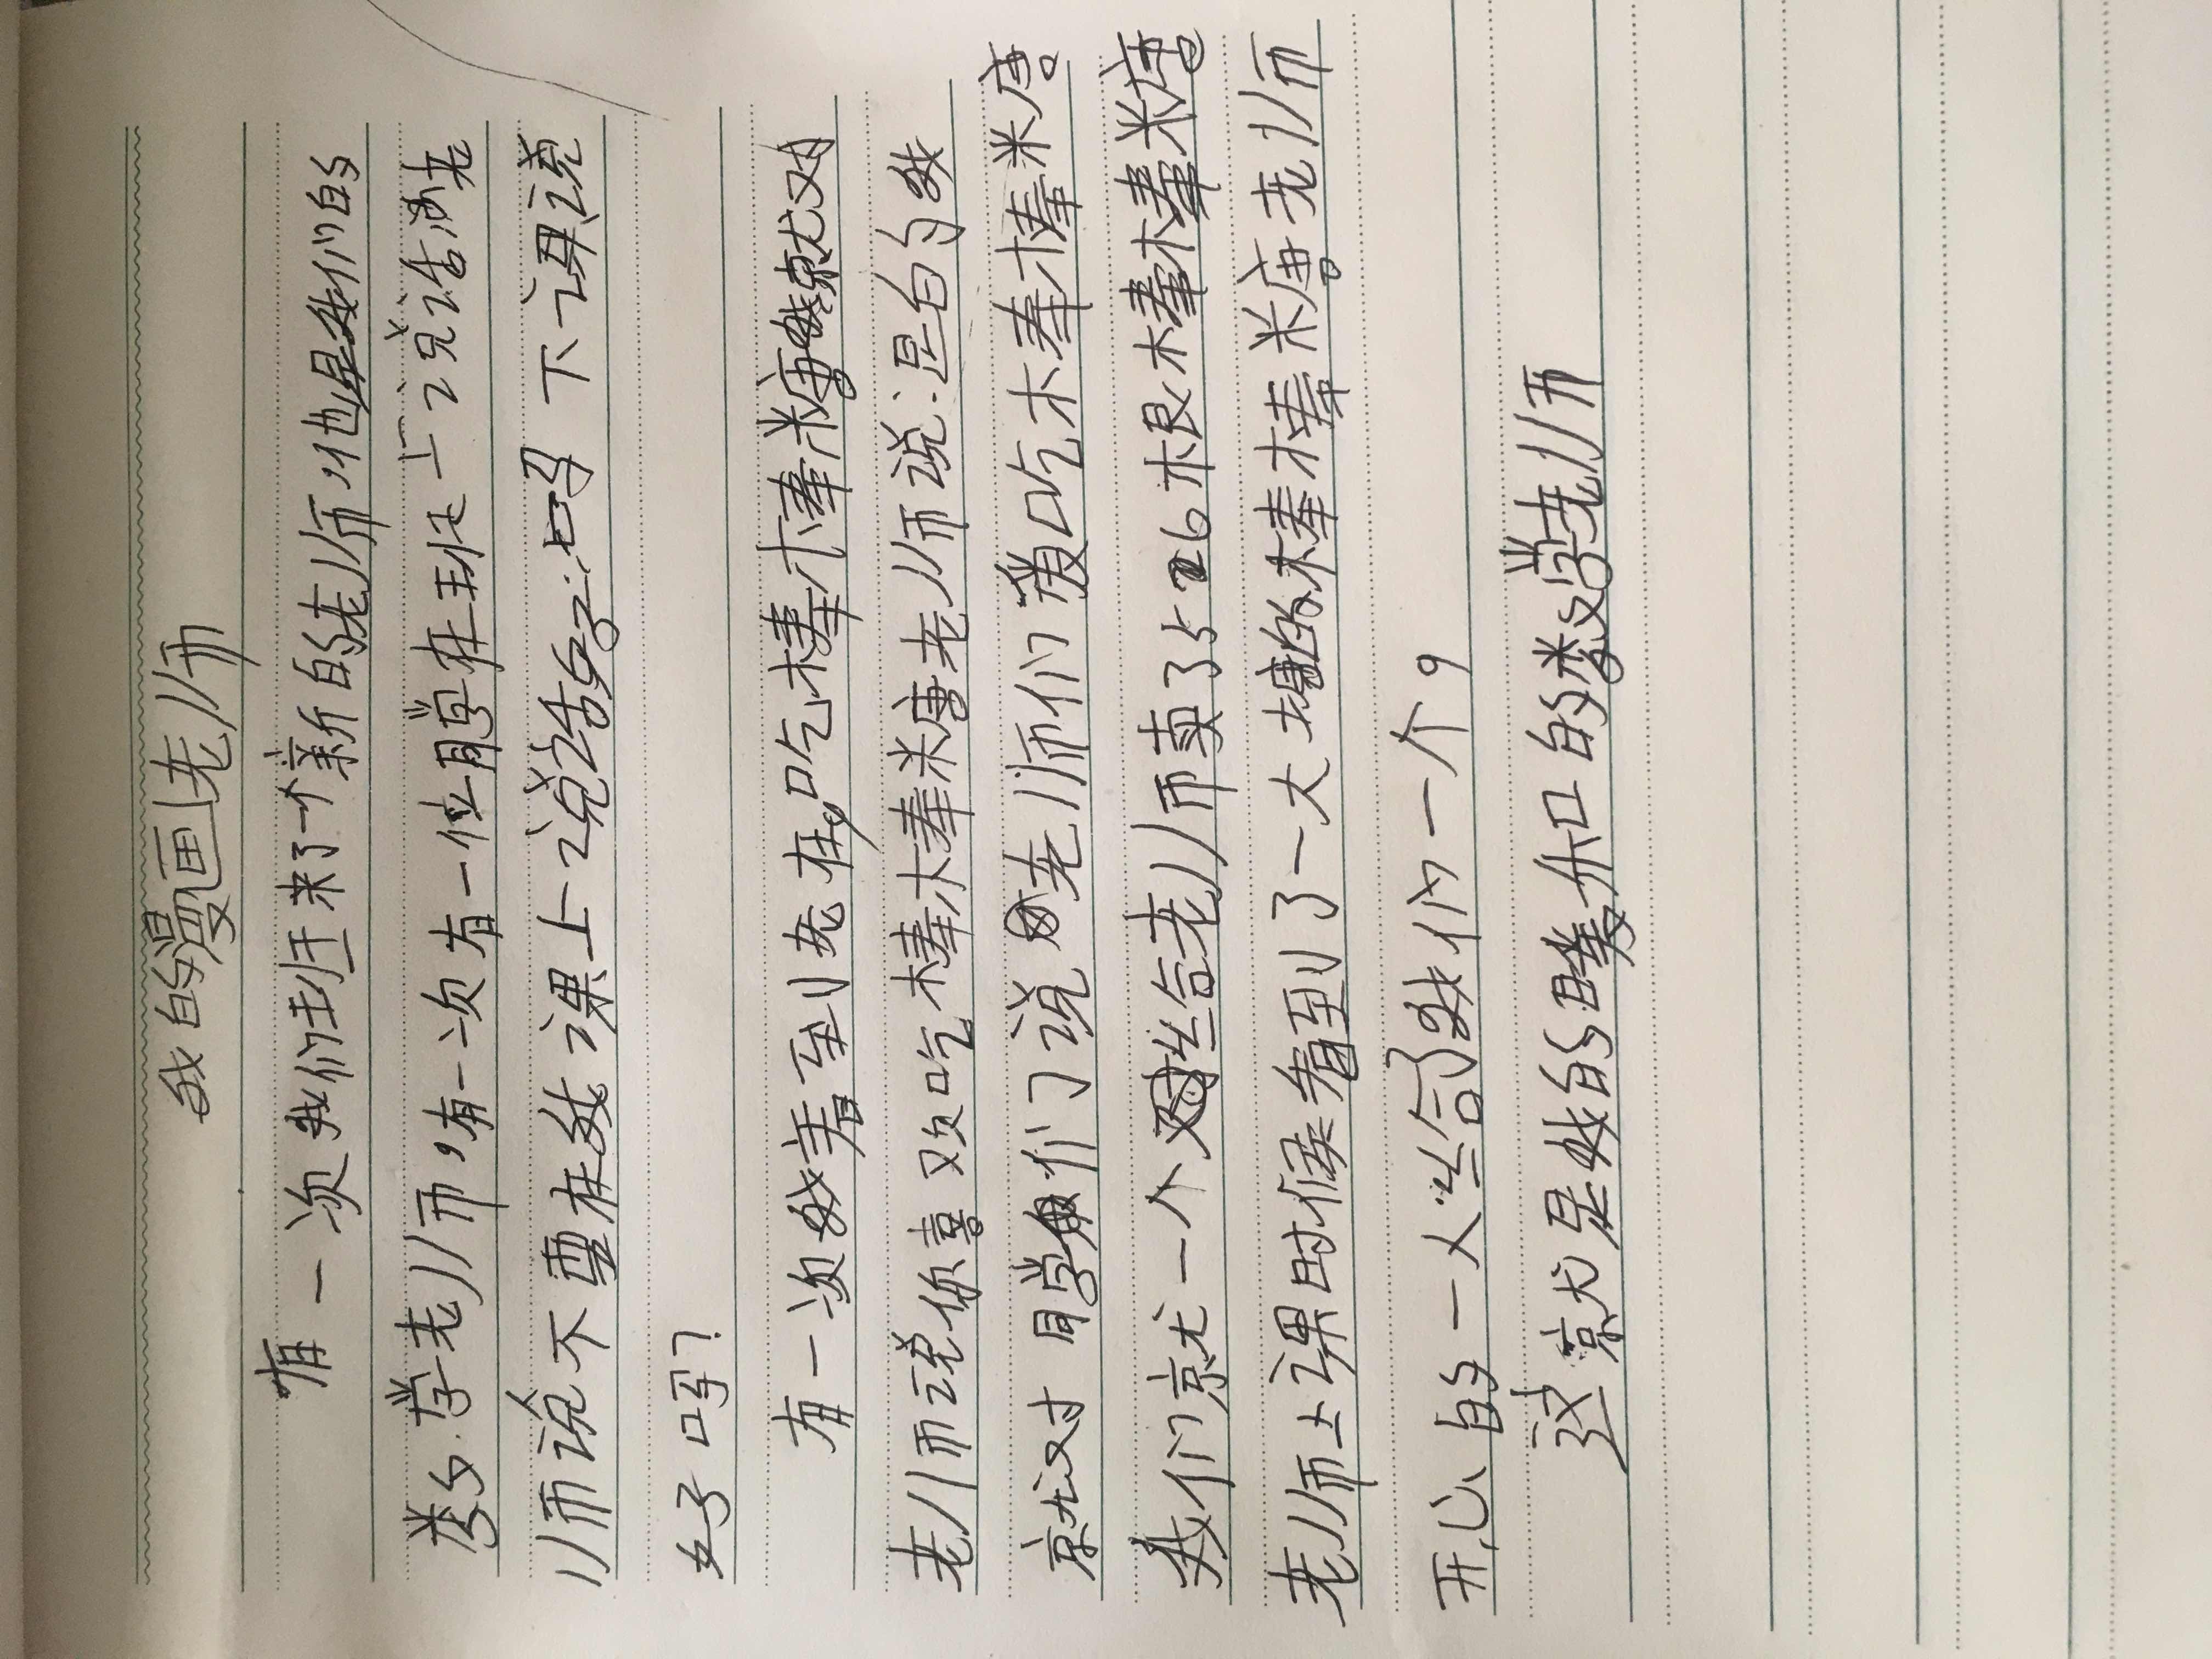 我的漫画老师
有一次我们班来了一个新的老师,他是我们的
数学老师,有一次有一位同学在班上说话老
师说不要在我课上说话好吗 下课说
好吗?
有一次我看到老在吃棒棒糖我就对
老师说你喜欢吃棒棒糖老师说:是的我
就对同学们说老师们爱吃棒棒糖
我们就一个给老师卖了526根棒棒糖
老师上课时候看到了一大堆的棒棒糖老师
开心的一人给了我们一个,
这就是我的和的数学老师